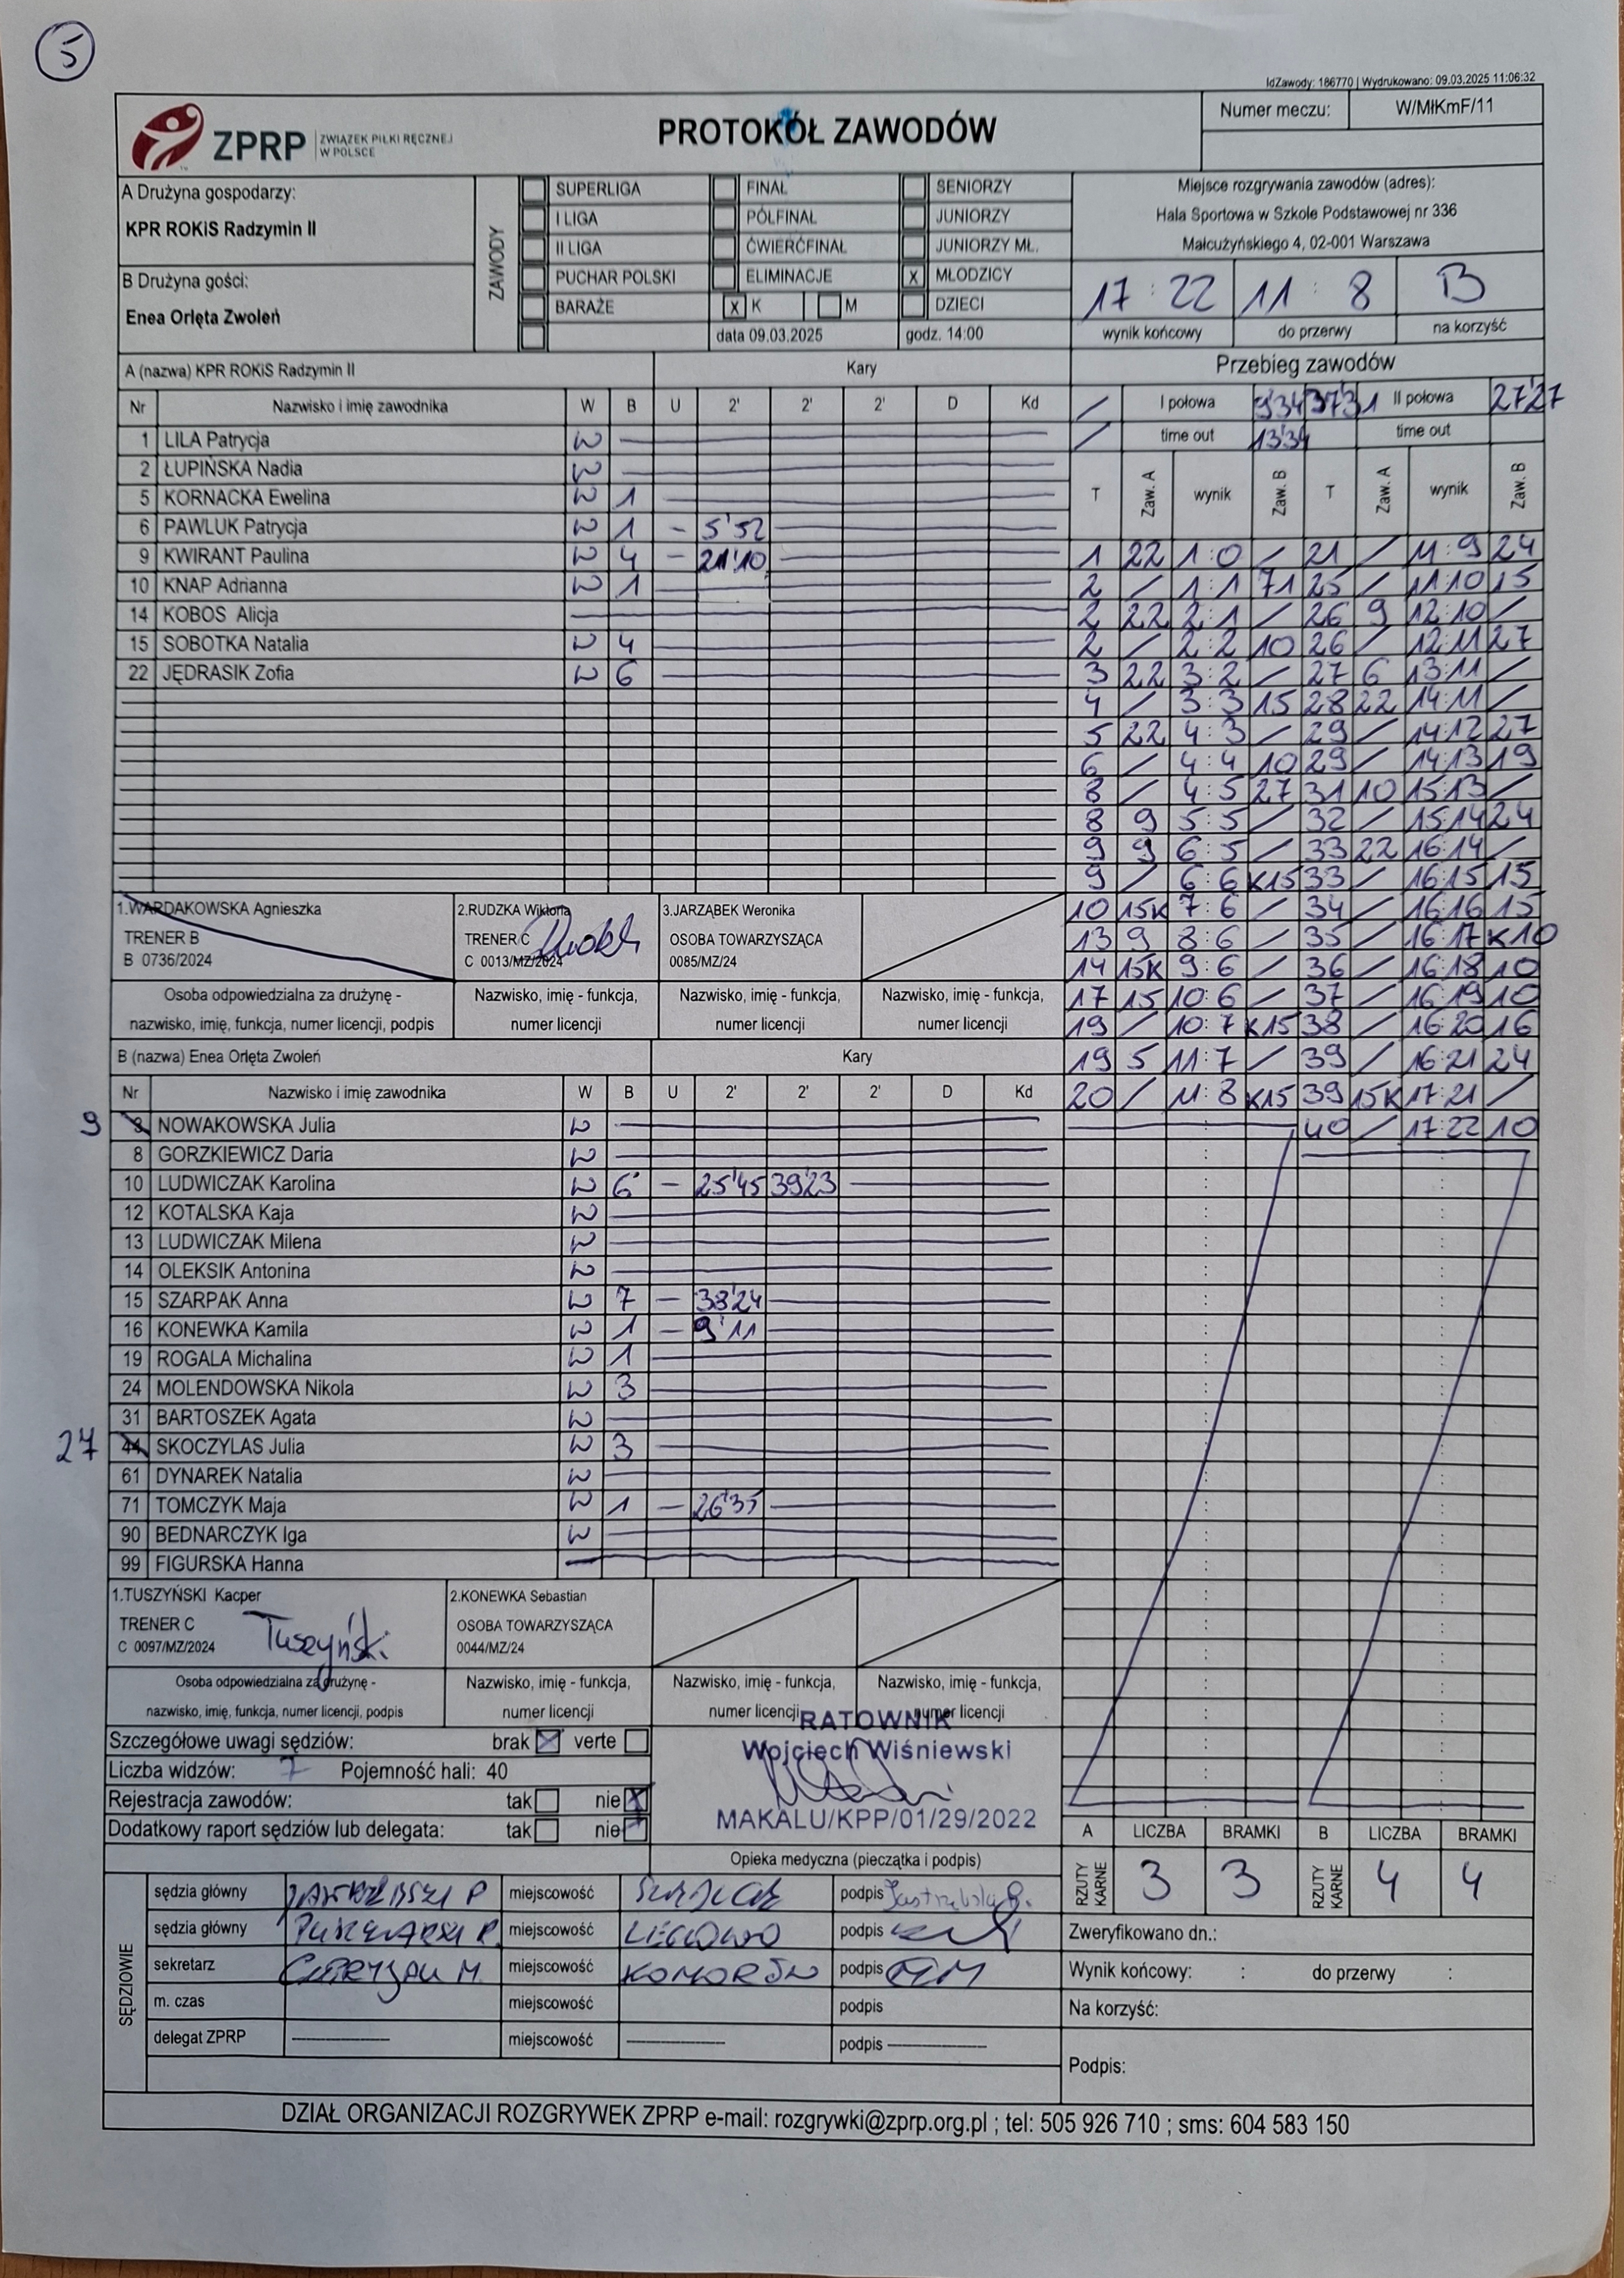 5
IdZawody: 186770 | Wydrukowano: 09.03.2025 11:06:32
ZPRP ZWIĄZEK PIŁKI RĘCZNEJ W POLSCE
PROTOKÓŁ ZAWODÓW
Numer meczu: W/MłKmF/11
A Drużyna gospodarzy:
KPR ROKiS Radzymin II
B Drużyna gości:
Enea Orlęta Zwoleń
ZAWODY
SUPERLIGA FINAŁ SENIORZY
I LIGA PÓŁFINAŁ JUNIORZY
II LIGA ĆWIERĆFINAŁ JUNIORZY MŁ.
PUCHAR POLSKI ELIMINACJE X MŁODZICY
BARAŻE X K M DZIECI
data 09.03.2025 godz. 14:00
Miejsce rozgrywania zawodów (adres):
Hala Sportowa w Szkole Podstawowej nr 336
Małcużyńskiego 4, 02-001 Warszawa
17 : 22 11 : 8 B
wynik końcowy do przerwy na korzyść
A (nazwa) KPR ROKiS Radzymin II Kary
Nr Nazwisko i imię zawodnika W B U 2' 2' 2' D Kd
1 LILA Patrycja W
2 ŁUPIŃSKA Nadia W
5 KORNACKA Ewelina W 1
6 PAWLUK Patrycja W 1 - 5'52
9 KWIRANT Paulina W 4 - 21'10
10 KNAP Adrianna W 1
14 KOBOS Alicja
15 SOBOTKA Natalia W 4
22 JĘDRASIK Zofia W 6
1.WARDAKOWSKA Agnieszka
TRENER B
B 0736/2024
2.RUDZKA Wiktoria
TRENER C
C 0013/MZ/2024
3.JARZĄBEK Weronika
OSOBA TOWARZYSZĄCA
0085/MZ/24
Osoba odpowiedzialna za drużynę -
nazwisko, imię, funkcja, numer licencji, podpis
Nazwisko, imię - funkcja,
numer licencji
Nazwisko, imię - funkcja,
numer licencji
Nazwisko, imię - funkcja,
numer licencji
B (nazwa) Enea Orlęta Zwoleń Kary
Nr Nazwisko i imię zawodnika W B U 2' 2' 2' D Kd
9 NOWAKOWSKA Julia W
8 GORZKIEWICZ Daria W
10 LUDWICZAK Karolina W 6 - 25'45 39'23
12 KOTALSKA Kaja W
13 LUDWICZAK Milena W
14 OLEKSIK Antonina W
15 SZARPAK Anna W 7 - 38'24
16 KONEWKA Kamila W 1 - 9'11
19 ROGALA Michalina W 1
24 MOLENDOWSKA Nikola W 3
31 BARTOSZEK Agata W
27 44 SKOCZYLAS Julia W 3
61 DYNAREK Natalia W
71 TOMCZYK Maja W 1 - 26'35
90 BEDNARCZYK Iga W
99 FIGURSKA Hanna
1.TUSZYŃSKI Kacper
TRENER C
C 0097/MZ/2024
Tuszyński
2.KONEWKA Sebastian
OSOBA TOWARZYSZĄCA
0044/MZ/24
Osoba odpowiedzialna za drużynę -
nazwisko, imię, funkcja, numer licencji, podpis
Nazwisko, imię - funkcja,
numer licencji
Nazwisko, imię - funkcja,
numer licencji
Nazwisko, imię - funkcja,
numer licencji
Przebieg zawodów
/ I połowa II połowa 27'27
/ time out 13'34 time out
T Zaw. A wynik Zaw. B T Zaw. A wynik Zaw. B
1 22 1:0 / 21 / 11:9 24
2 / 1:1 71 25 / 11:10 15
2 22 2:1 / 26 9 12:10 /
2 / 2:2 10 26 / 12:11 27
3 22 3:2 / 27 6 13:11 /
4 / 3:3 15 28 22 14:11 /
5 22 4:3 / 29 / 14:12 27
6 / 4:4 10 29 / 14:13 19
8 / 4:5 27 31 10 15:13 /
8 9 5:5 / 32 / 15:14 24
9 9 6:5 / 33 22 16:14 /
9 / 6:6 K15 33 / 16:15 15
10 15K 7:6 / 34 / 16:16 15
13 9 8:6 / 35 / 16:17 K10
14 15K 9:6 / 36 / 16:18 10
17 15 10:6 / 37 / 16:19 10
19 / 10:7 K15 38 / 16:20 16
19 5 11:7 / 39 / 16:21 24
20 / 11:8 K15 39 15K 17:21 /
40 / 17:22 10
Szczegółowe uwagi sędziów: brak X verte
Liczba widzów: 7 Pojemność hali: 40
Rejestracja zawodów: tak nie X
Dodatkowy raport sędziów lub delegata: tak nie
RATOWNIK
Wojciech Wiśniewski
MAKALU/KPP/01/29/2022
Opieka medyczna (pieczątka i podpis)
A LICZBA BRAMKI B LICZBA BRAMKI
RZUTY KARNE 3 3 RZUTY KARNE 4 4
SĘDZIOWIE
sędzia główny miejscowość podpis
sędzia główny miejscowość LEGIONOWO podpis
sekretarz miejscowość KOMORÓW podpis
m. czas miejscowość podpis
delegat ZPRP miejscowość podpis
Zweryfikowano dn.:
Wynik końcowy: : do przerwy :
Na korzyść:
Podpis:
DZIAŁ ORGANIZACJI ROZGRYWEK ZPRP e-mail: rozgrywki@zprp.org.pl ; tel: 505 926 710 ; sms: 604 583 150